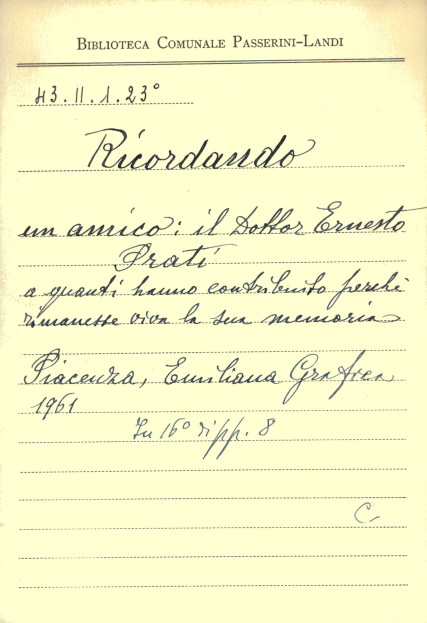 BIBLIOTECA COMUNALE PASSERINI-LANDI
43.II.1.23°
Ricordando
un amico: il Dottor Ernesto
Prati
a quanti hanno contribuito perchè
rimanesse viva la sua memoria
Piacenza, Emiliana Grafica
1961
In 16° di pp. 8
C